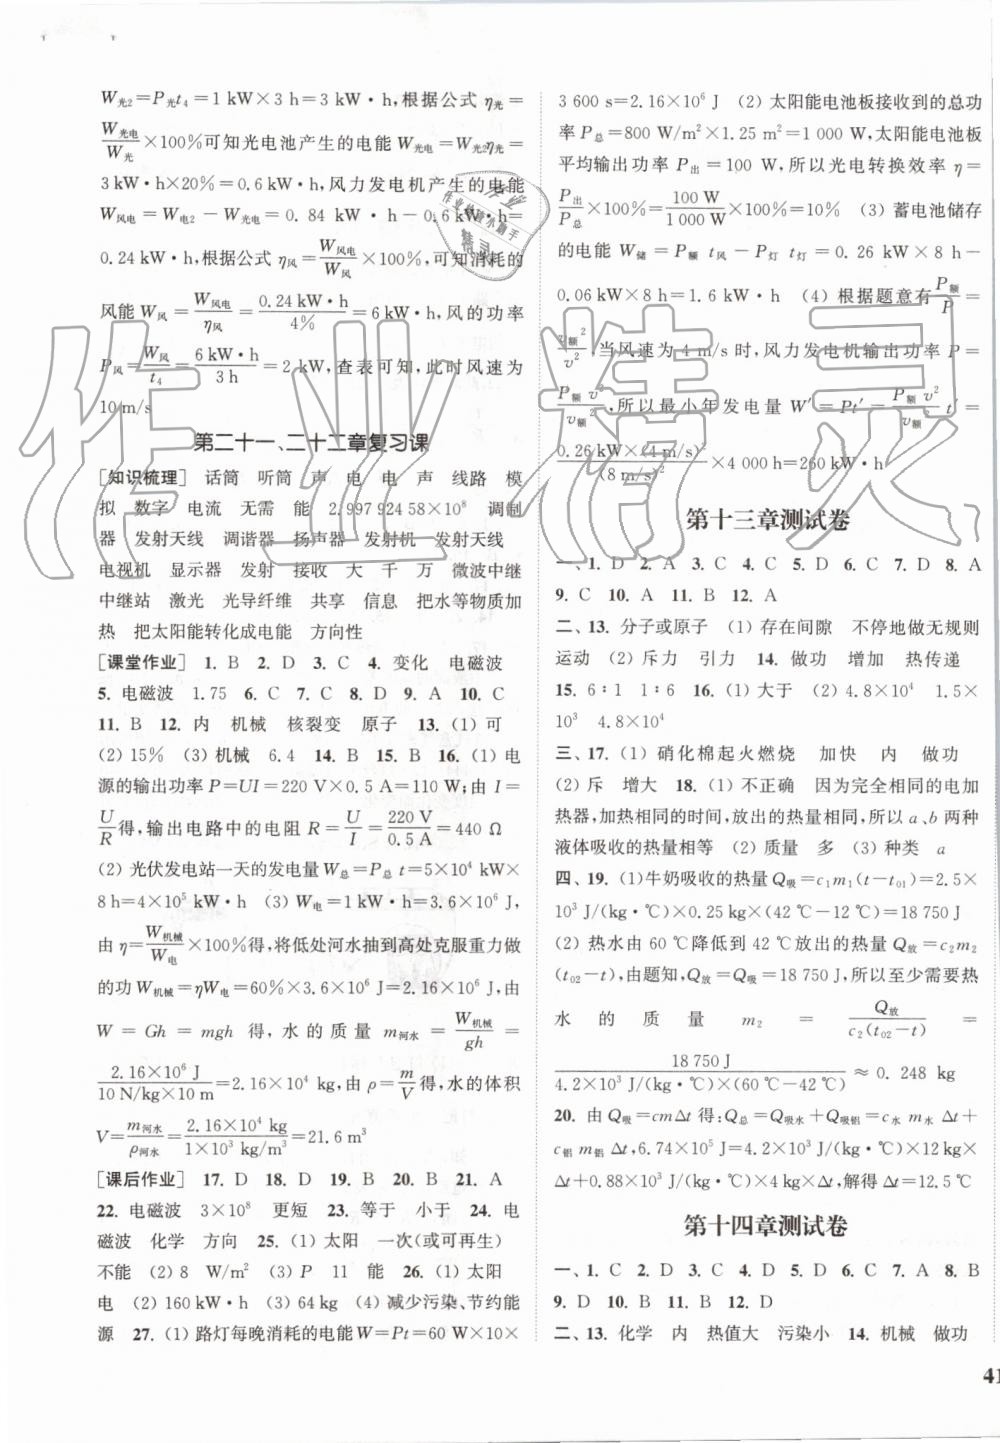 W光2=P光t4=1 kW×3 h=3 kW·h,根据公式 η光=
W光电/W光×100%可知光电池产生的电能 W光电=W光2η光=
3 kW·h×20%=0.6 kW·h,风力发电机产生的电能
W风电=W电2-W光电=0.84 kW·h-0.6 kW·h=
0.24 kW·h,根据公式 η风=W风电/W风×100%,可知消耗的
风能 W风=W风电/η风=0.24 kW·h/4%=6 kW·h,风的功率
P风=W风/t4=6 kW·h/3 h=2 kW,查表可知,此时风速为
10 m/s
第二十一、二十二章复习课
[知识梳理] 话筒 听筒 声 电 电 声 线路 模
拟 数字 电流 无需 能 2.997 924 58×10⁸ 调制
器 发射天线 调谐器 扬声器 发射机 发射天线
电视机 显示器 发射 接收 大 千 万 微波中继
中继站 激光 光导纤维 共享 信息 把水等物质加
热 把太阳能转化成电能 方向性
[课堂作业] 1. B 2. D 3. C 4. 变化 电磁波
5. 电磁波 1.75 6. C 7. C 8. D 9. A 10. C
11. B 12. 内 机械 核裂变 原子 13. (1) 可
(2) 15% (3) 机械 6.4 14. B 15. B 16. (1) 电
源的输出功率 P=UI=220 V×0.5 A=110 W;由 I=
U/R得,输出电路中的电阻 R=U/I=220 V/0.5 A=440 Ω
(2) 光伏发电站一天的发电量 W总=P总 t=5×10⁴ kW×
8 h=4×10⁵ kW·h (3) W电=1 kW·h=3.6×10⁶ J,
由 η=W机械/W电×100%得,将低处河水抽到高处克服重力做
的功 W机械=ηW电=60%×3.6×10⁶ J=2.16×10⁶ J,由
W=Gh=mgh 得,水的质量 m河水=W机械/gh=
2.16×10⁶ J/10 N/kg×10 m=2.16×10⁴ kg,由 ρ=m/V得,水的体积
V=m河水/ρ河水=2.16×10⁴ kg/1×10³ kg/m³=21.6 m³
[课后作业] 17. D 18. D 19. B 20. B 21. A
22. 电磁波 3×10⁸ 更短 23. 等于 小于 24. 电
磁波 化学 方向 25. (1) 太阳 一次(或可再生)
不能 (2) 8 W/m² (3) P 11 能 26. (1) 太阳
电 (2) 160 kW·h (3) 64 kg (4) 减少污染、节约能
源 27. (1) 路灯每晚消耗的电能 W=Pt=60 W×10×
3 600 s=2.16×10⁶ J (2) 太阳能电池板接收到的总功
率 P总=800 W/m²×1.25 m²=1 000 W,太阳能电池板
平均输出功率 P出=100 W,所以光电转换效率 η=
P出/P总×100%=100 W/1 000 W×100%=10% (3) 蓄电池储存
的电能 W储=P额 t风-P灯 t灯=0.26 kW×8 h-
0.06 kW×8 h=1.6 kW·h (4) 根据题意有P额/P=
v额²/v²,当风速为 4 m/s 时,风力发电机输出功率 P=
P额 v²/v额²,所以最小年发电量 W′=Pt′=P额 v²/v额² t′=
0.26 kW×(4 m/s)²/(8 m/s)²×4 000 h=260 kW·h
第十三章测试卷
一、1. D 2. A 3. C 4. C 5. D 6. C 7. D 8. A
9. C 10. A 11. B 12. A
二、13. 分子或原子 (1) 存在间隙 不停地做无规则
运动 (2) 斥力 引力 14. 做功 增加 热传递
15. 6∶1 1∶6 16. (1) 大于 (2) 4.8×10⁴ 1.5×
10³ 4.8×10⁴
三、17. (1) 硝化棉起火燃烧 加快 内 做功
(2) 斥 增大 18. (1) 不正确 因为完全相同的电加
热器,加热相同的时间,放出的热量相同,所以 a、b 两种
液体吸收的热量相等 (2) 质量 多 (3) 种类 a
四、19. (1)牛奶吸收的热量 Q吸=c1m1(t-t01)=2.5×
10³ J/(kg·℃)×0.25 kg×(42 ℃-12 ℃)=18 750 J
(2) 热水由 60 ℃降低到 42 ℃放出的热量 Q放=c2m2
(t02-t),由题知,Q放=Q吸=18 750 J,所以至少需要热
水的质量 m2=Q放/c2(t02-t)=
18 750 J/4.2×10³ J/(kg·℃)×(60 ℃-42 ℃)≈0.248 kg
20. 由 Q吸=cmΔt 得:Q总=Q吸水+Q吸铝=c水 m水 Δt+
c铝 m铝 Δt,6.74×10⁵ J=4.2×10³ J/(kg·℃)×12 kg×
Δt+0.88×10³ J/(kg·℃)×4 kg×Δt,解得 Δt=12.5 ℃
第十四章测试卷
一、1. C 2. D 3. C 4. D 5. D 6. D 7. A 8. B
9. D 10. B 11. B 12. D
二、13. 化学 内 热值大 污染小 14. 机械 做功
41
作业精灵